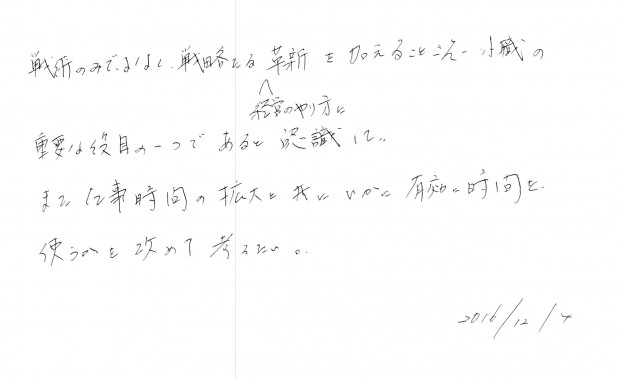 戦術のみではなく、戦略たる革新を加えることこそ小職の
経営のやり方に
重要な役目の一つであると認識した。
また仕事時間の拡大と共にいかに有効に時間を
使うかを改めて考えたい。
2016/12/4